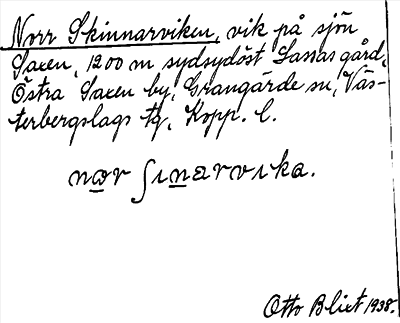 Norr Skinnarviken, vik på sjön
Saxen, 1200 m sydsydöst Lassas gård,
Östra Saxen by, Grangärde sn, Väs-
terbergslags tg, Kopp. l.
nor ʃinarvika.
Otto Blixt 1938.